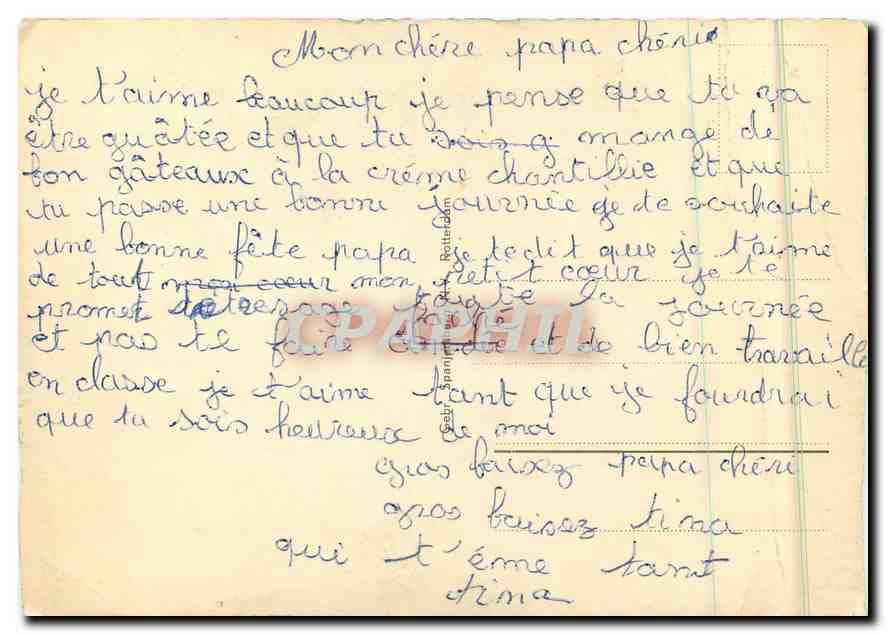 Mon chére papa chéri
je t'aime beaucoup je pense que tu va
être guâtée et que tu sois g mange de
bon gâteaux à la créme chantillie et que
tu passe une bonne journée je te souhaite
une bonne fête papa je te dit que je t'aime
de tout mon coeur mon petit coeur je te
promet de te toute la journée
et pas te faire et de bien travaille
en classe je t'aime tant que je foudrai
que tu sois heureux de moi
gros baisez papa chéri
gros baisez tina
qui t'éme tant
tina
Gebr. Spanjersberg N.V. Rotterdam
CPAPHIL